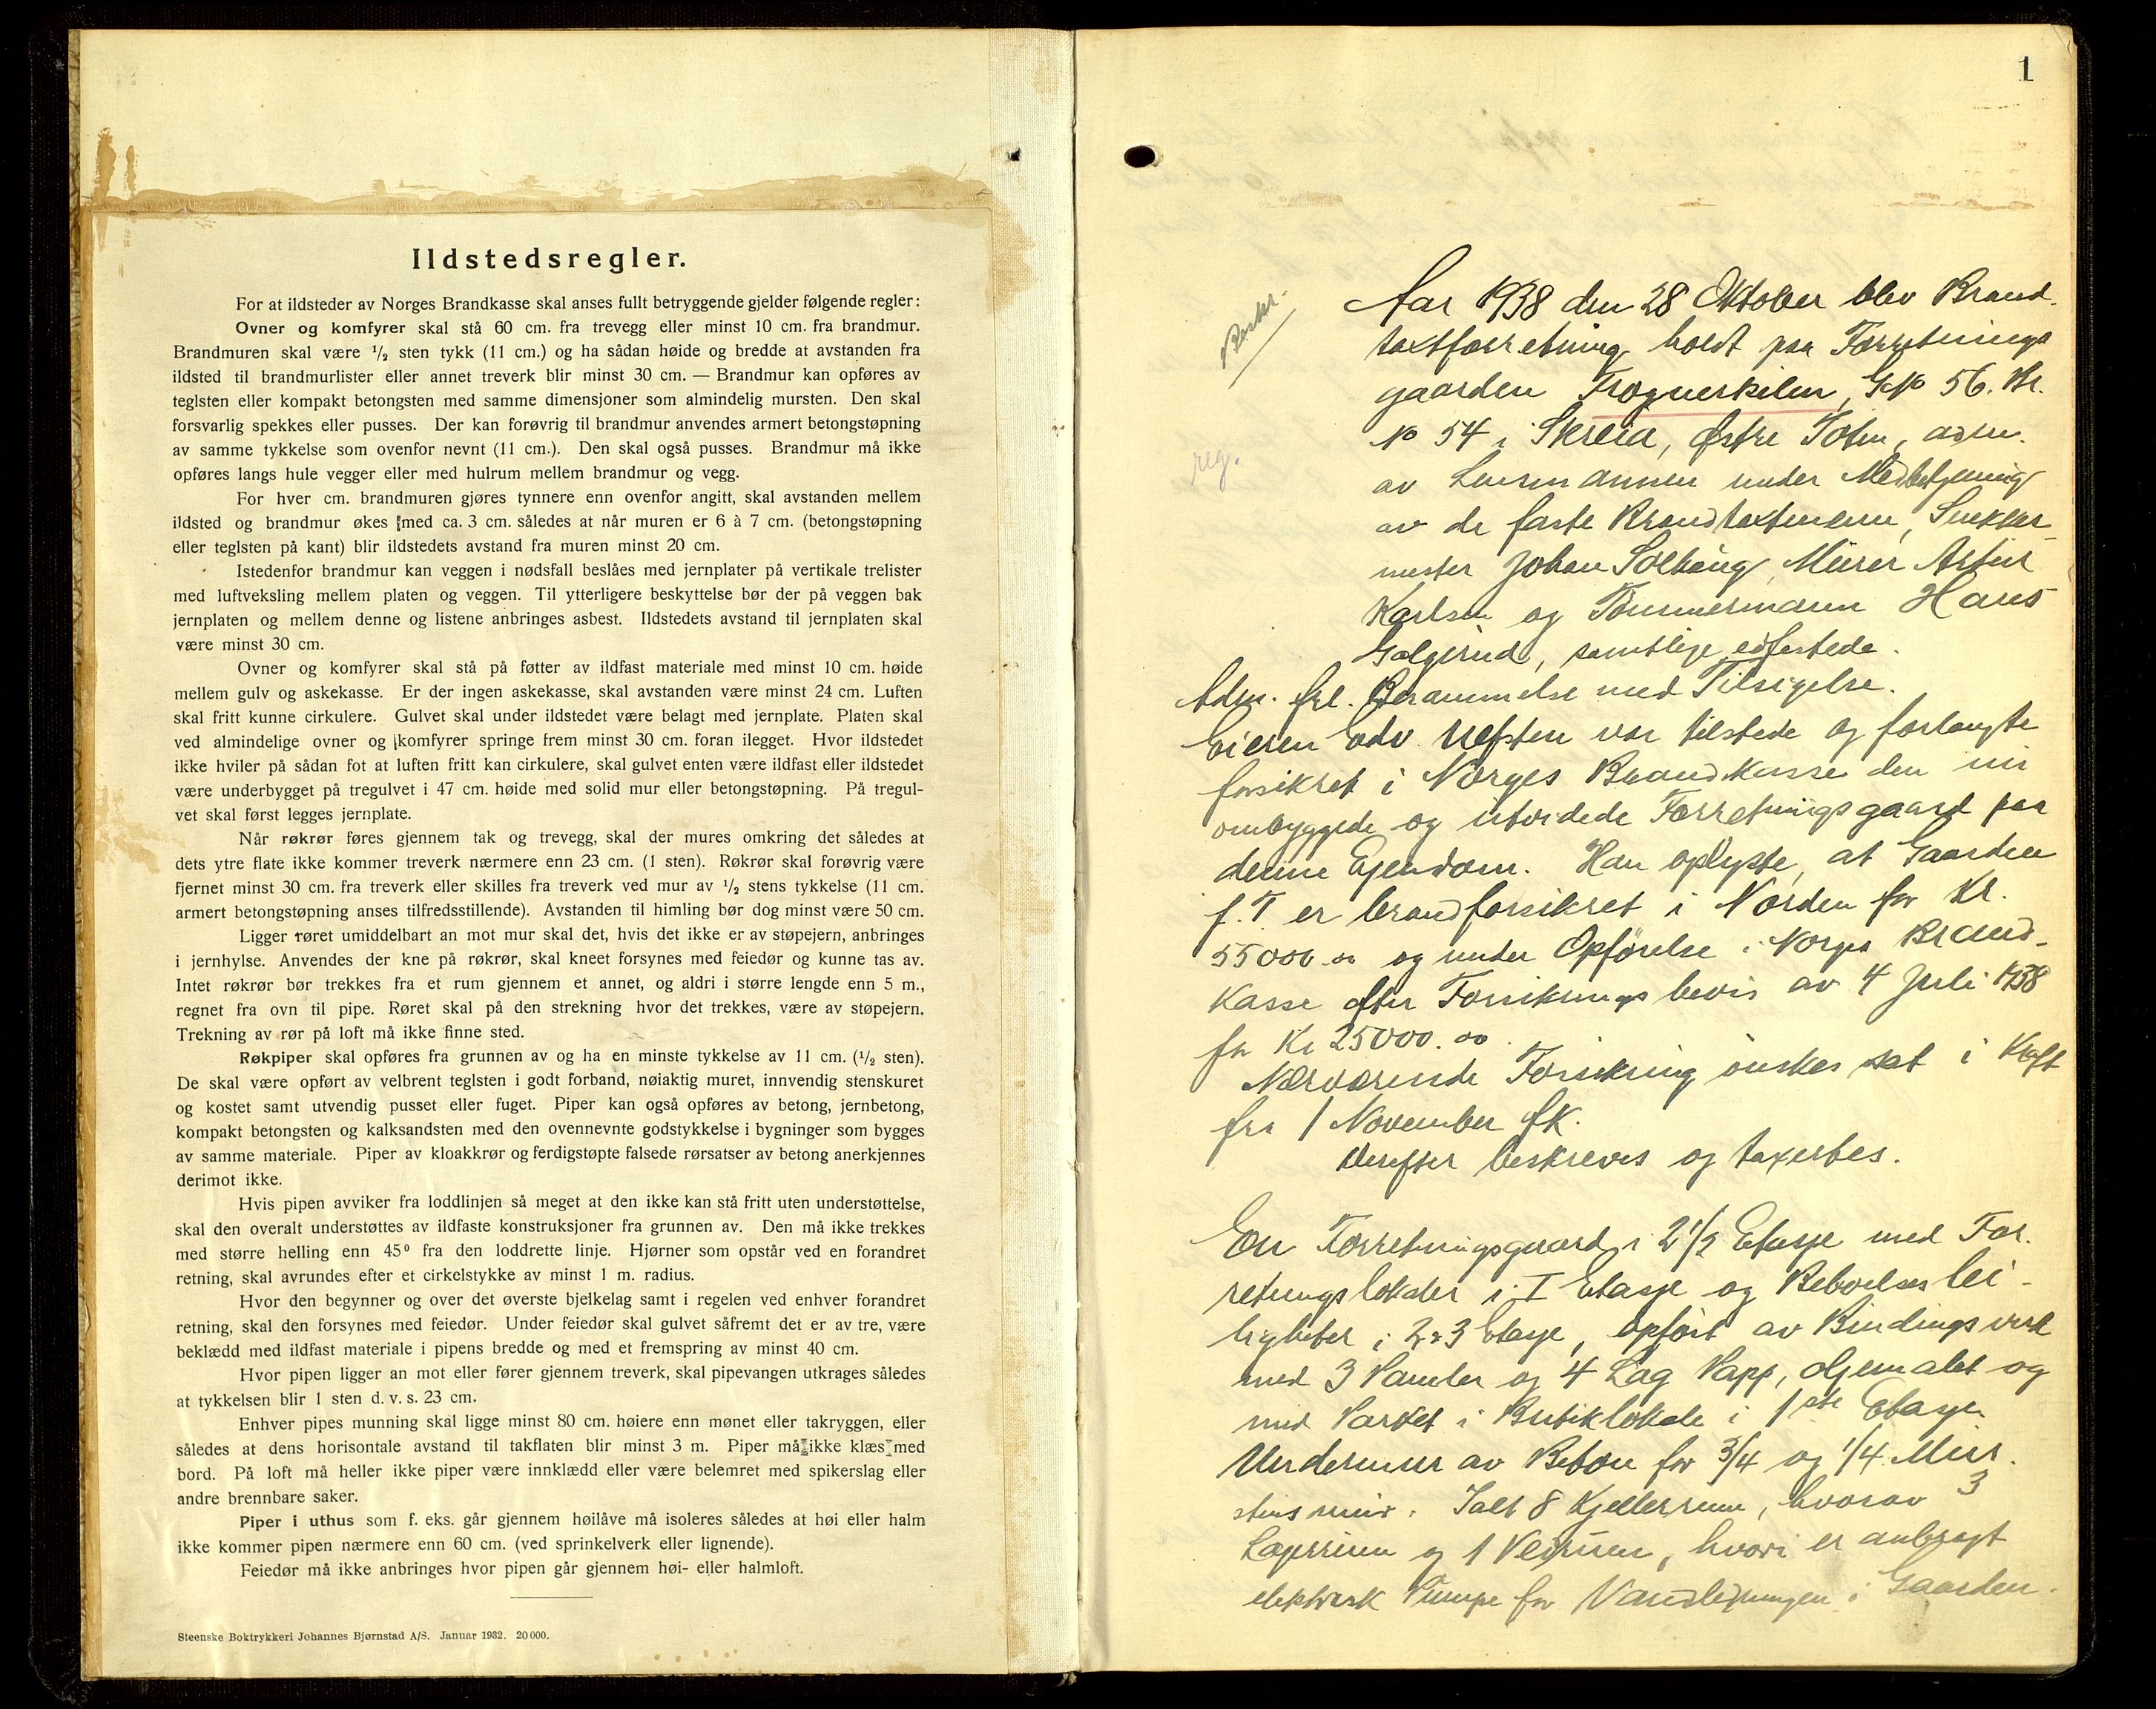 Ildstedsregler.
For at ildsteder av Norges Brandkasse skal anses fullt betryggende gjelder følgende regler:
Ovner og komfyrer skal stå 60 cm. fra trevegg eller minst 10 cm. fra brandmur.
Brandmuren skal være ½ sten tykk (11 cm.) og ha sådan høide og bredde at avstanden fra
ildsted til brandmurlister eller annet treverk blir minst 30 cm. — Brandmur kan opføres av
teglsten eller kompakt betongsten med samme dimensjoner som almindelig mursten. Den skal
forsvarlig spekkes eller pusses. Der kan forøvrig til brandmur anvendes armert betongstøpning
av samme tykkelse som ovenfor nevnt (11 cm.). Den skal også pusses. Brandmur må ikke
opføres langs hule vegger eller med hulrum mellem brandmur og vegg.
For hver cm. brandmuren gjøres tynnere enn ovenfor angitt, skal avstanden mellem
ildsted og brandmur økes med ca. 3 cm. således at når muren er 6 à 7 cm. (betongstøpning
eller teglsten på kant) blir ildstedets avstand fra muren minst 20 cm.
Istedenfor brandmur kan veggen i nødsfall beslåes med jernplater på vertikale trelister
med luftveksling mellem platen og veggen. Til ytterligere beskyttelse bør der på veggen bak
jernplaten og mellem denne og listene anbringes asbest. Ildstedets avstand til jernplaten skal
være minst 30 cm.
Ovner og komfyrer skal stå på føtter av ildfast materiale med minst 10 cm. høide
mellem gulv og askekasse. Er der ingen askekasse, skal avstanden være minst 24 cm. Luften
skal fritt kunne cirkulere. Gulvet skal under ildstedet være belagt med jernplate. Platen skal
ved almindelige ovner og komfyrer springe frem minst 30 cm. foran ilegget. Hvor ildstedet
ikke hviler på sådan fot at luften fritt kan cirkulere, skal gulvet enten være ildfast eller ildstedet
være underbygget på tregulvet i 47 cm. høide med solid mur eller betongstøpning. På tregul-
vet skal først legges jernplate.
Når røkrør føres gjennem tak og trevegg, skal der mures omkring det således at
dets ytre flate ikke kommer treverk nærmere enn 23 cm. (1 sten). Røkrør skal forøvrig være
fjernet minst 30 cm. fra treverk eller skilles fra treverk ved mur av ½ stens tykkelse (11 cm.
armert betongstøpning anses tilfredsstillende). Avstanden til himling bør dog minst være 50 cm.
Ligger røret umiddelbart an mot mur skal det, hvis det ikke er av støpejern, anbringes
i jernhylse. Anvendes der kne på røkrør, skal kneet forsynes med feiedør og kunne tas av.
Intet røkrør bør trekkes fra et rum gjennem et annet, og aldri i større lengde enn 5 m.,
regnet fra ovn til pipe. Røret skal på den strekning hvor det trekkes, være av støpejern.
Trekning av rør på loft må ikke finne sted.
Røkpiper skal opføres fra grunnen av og ha en minste tykkelse av 11 cm. (½ sten).
De skal være opført av velbrent teglsten i godt forband, nøiaktig muret, innvendig stenskuret
og kostet samt utvendig pusset eller fuget. Piper kan også opføres av betong, jernbetong,
kompakt betongsten og kalksandsten med den ovennevnte godstykkelse i bygninger som bygges
av samme materiale. Piper av kloakkrør og ferdigstøpte falsede rørsatser av betong anerkjennes
derimot ikke.
Hvis pipen avviker fra loddlinjen så meget at den ikke kan stå fritt uten understøttelse,
skal den overalt understøttes av ildfaste konstruksjoner fra grunnen av. Den må ikke trekkes
med større helling enn 45° fra den loddrette linje. Hjørner som opstår ved en forandret
retning, skal avrundes efter et cirkelstykke av minst 1 m. radius.
Hvor den begynner og over det øverste bjelkelag samt i regelen ved enhver forandret
retning, skal den forsynes med feiedør. Under feiedør skal gulvet såfremt det er av tre, være
beklædd med ildfast materiale i pipens bredde og med et fremspring av minst 40 cm.
Hvor pipen ligger an mot eller fører gjennem treverk, skal pipevangen utkrages således
at tykkelsen blir 1 sten d. v. s. 23 cm.
Enhver pipes munning skal ligge minst 80 cm. høiere enn mønet eller takryggen, eller
således at dens horisontale avstand til takflaten blir minst 3 m. Piper må ikke klæs med
bord. På loft må heller ikke piper være innklædd eller være belemret med spikerslag eller
andre brennbare saker.
Piper i uthus som f. eks. går gjennem høilåve må isoleres således at høi eller halm
ikke kommer pipen nærmere enn 60 cm. (ved sprinkelverk eller lignende).
Feiedør må ikke anbringes hvor pipen går gjennem høi- eller halmloft.
Steenske Boktrykkeri Johannes Bjørnstad A/S. Januar 1932. 20 000.
1
reg.
Aar 1938 den 28 Oktober blev Brand-
taxtforretning holdt paa Forretnings
gaarden Frognerkilen, G.No 56. Br.
No 54 i Skreia, Østre Toten, adm.
av Lensmannen under Medbetjening
av de faste Brandtaxtmenn, Snekker-
mester Johan Solhaug, Murer Artur
Karlsen og Tømmermann Hans
Galgerud, samtlige edfestede.
Adm. frl. Berammelse med Tilsigelse.
Eieren Edv. Nefsten var tilstede og forlangte
forsikret i Norges Brandkasse den nu
ombyggede og utvidede Forretningsgaard paa
denne Ejendom. Han oplyste, at Gaarden
f. T. er brandforsikret i Norden for Kr.
55000.00 og under Opførelse i Norges Brand-
kasse efter Forsikringsbevis av 4 Juli 1938
for Kr 25000.00.
Nærværende Forsikring ønskes sat i Kraft
fra 1 November fk.
Derefter beskreves og taxertes.
En Forretningsgaard i 2½ Etasje med For-
retningslokaler i I Etasje og Beboelseslei-
ligheter i 2 & 3 Etasje, opført av Bindingsverk
med 3 Panler og 4 Lag Papp, oljemalet og
med Parket i Butiklokale i 1ste Etasje.
Undermur av Beton for 3/4 og 1/4 Mur-
stensmur. Ialt 8 Kjellerrum, hvorav 3
Lagerrum og 1 , hvori er anbragt
elektrisk Pumpe for Vandledningen i Gaarden.